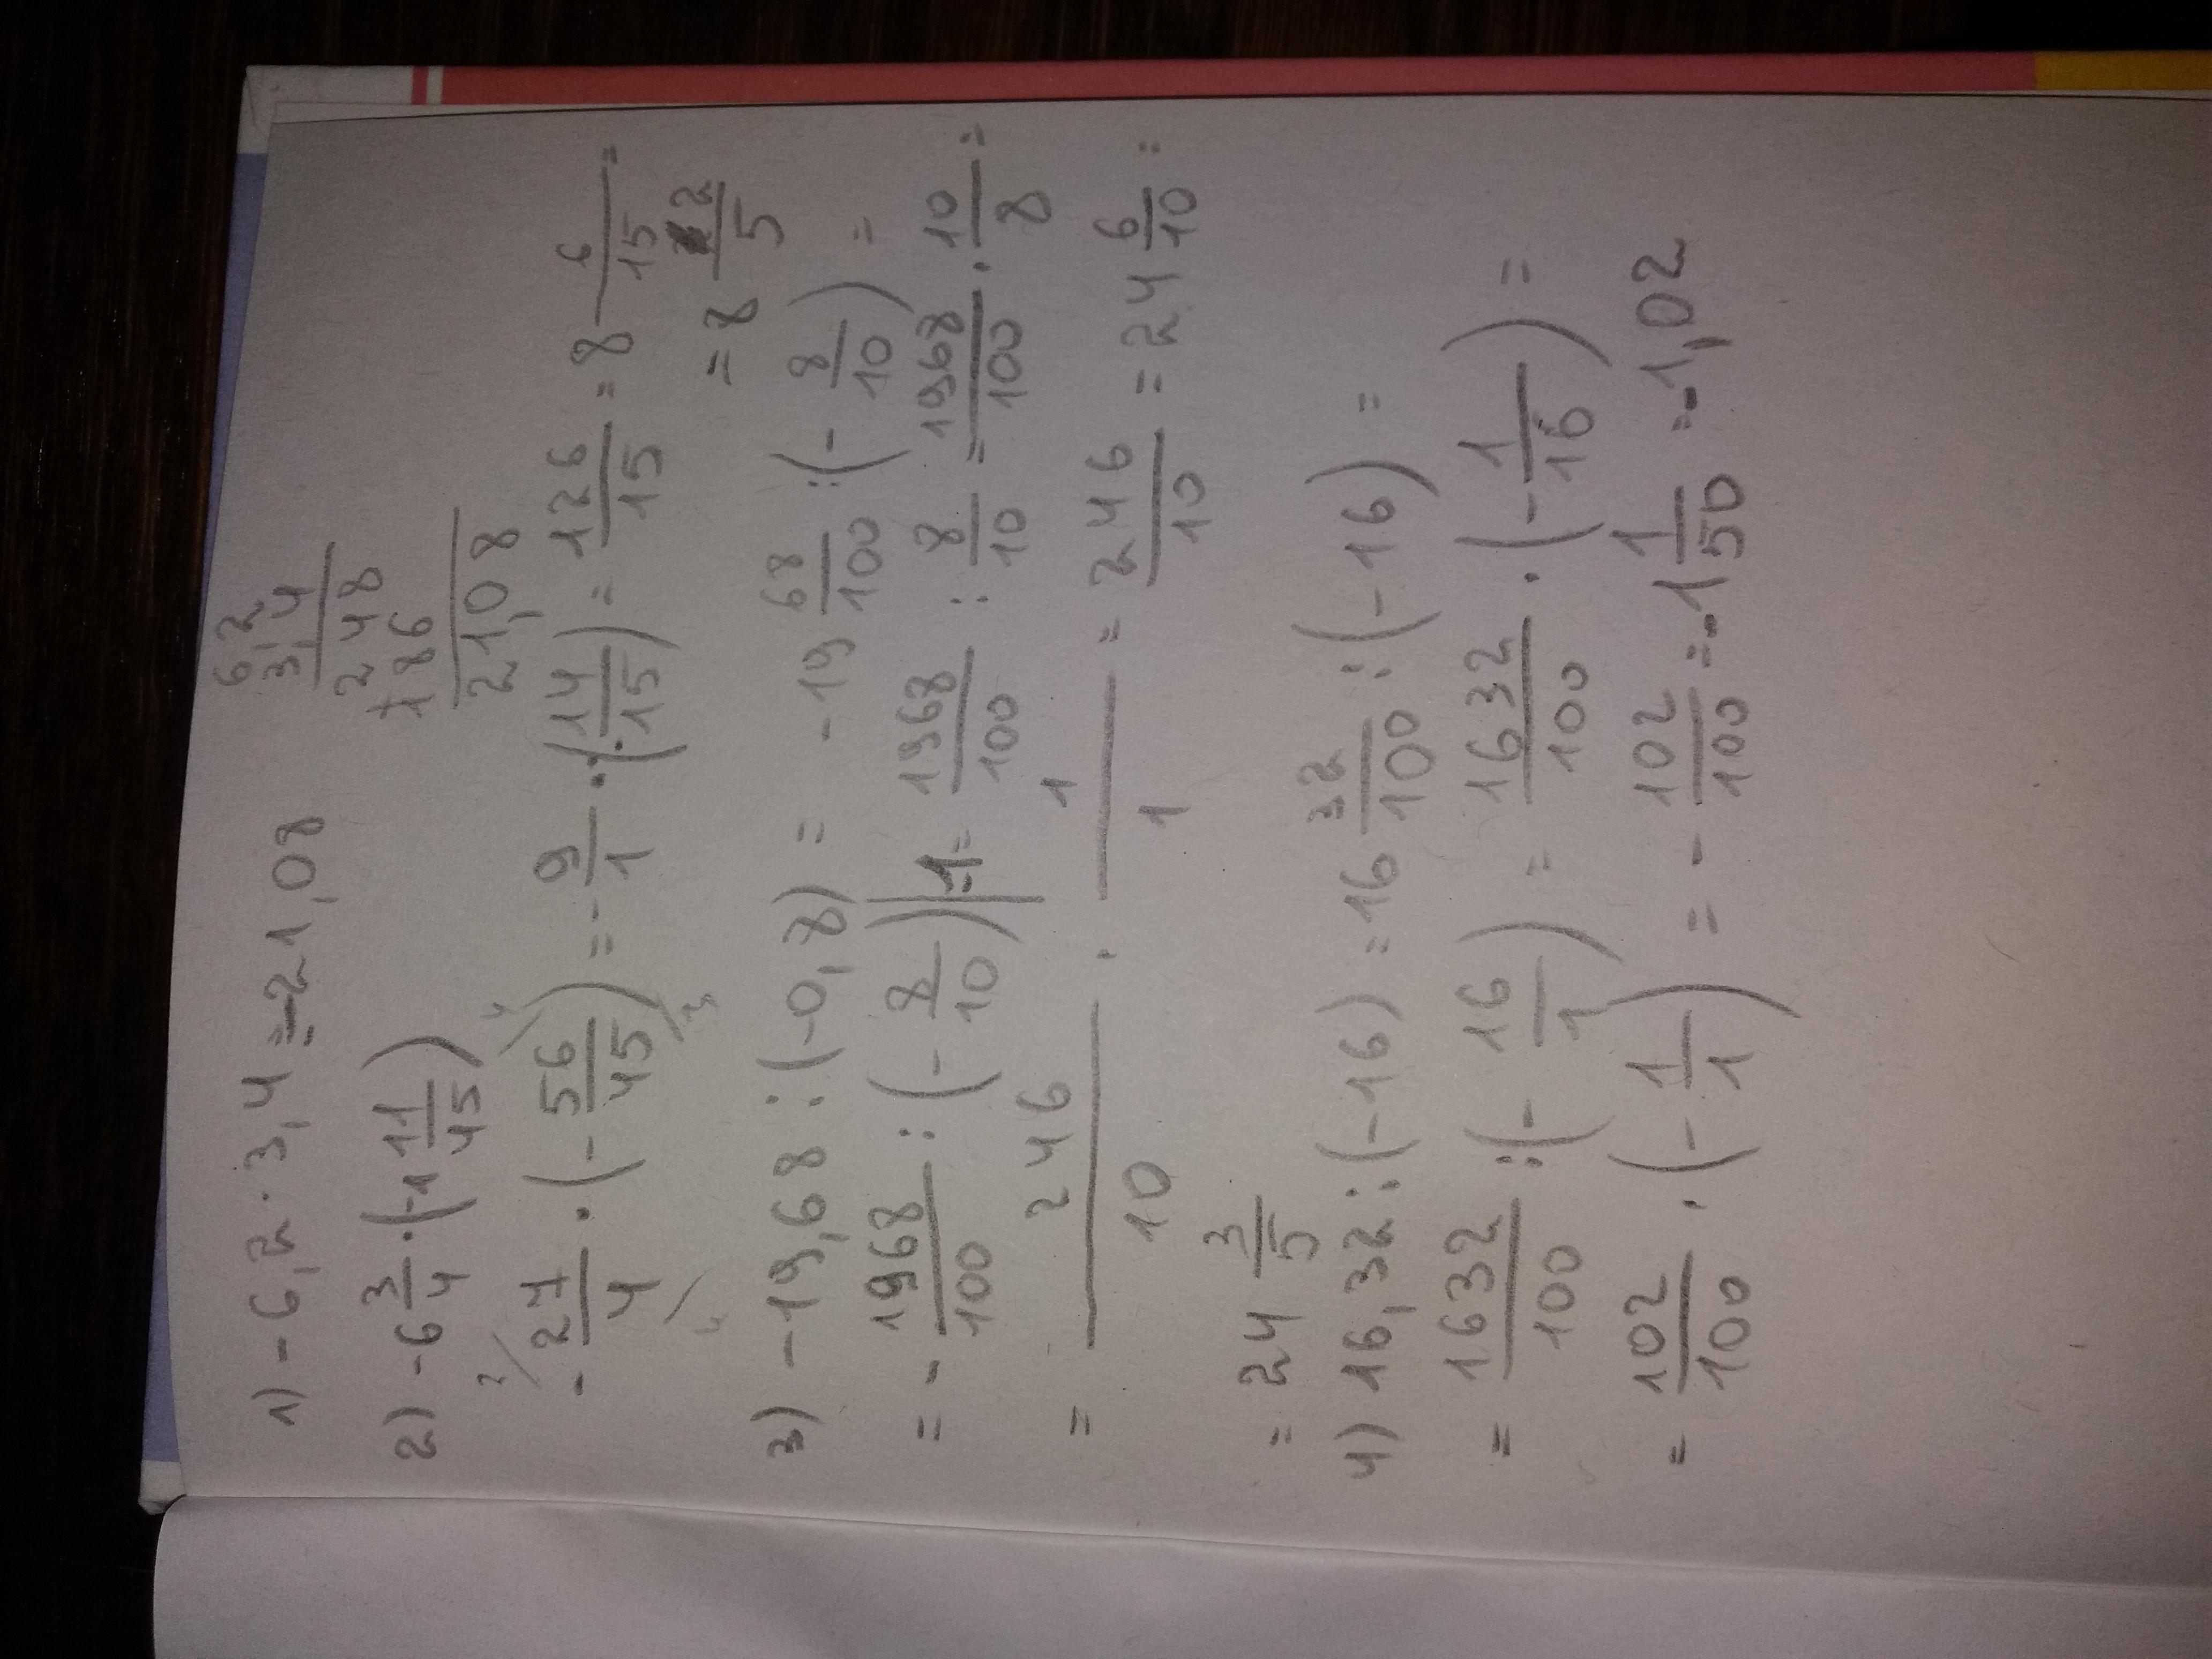 1) -6,2 · 3,4 = -21,08
6,2
3,4
248
+186
21,08
2) -6 3/4 · (-1 11/45)
-27/4 · (-56/45) = -9/1 · (-14/15) = 126/15 = 8 6/15 =
= 8 2/5
3) -19,68 : (-0,8) = -19 68/100 : (-8/10) =
= -1968/100 : (-8/10) = 1968/100 : 8/10 = 1968/100 · 10/8 =
= 246/10 · 1/1 = 246/10 = 24 6/10 =
= 24 3/5
4) 16,32 : (-16) = 16 32/100 : (-16) =
= 1632/100 : (-16/1) = 1632/100 · (-1/16) =
= 102/100 · (-1/1) = -102/100 = -1 1/50 = -1,02